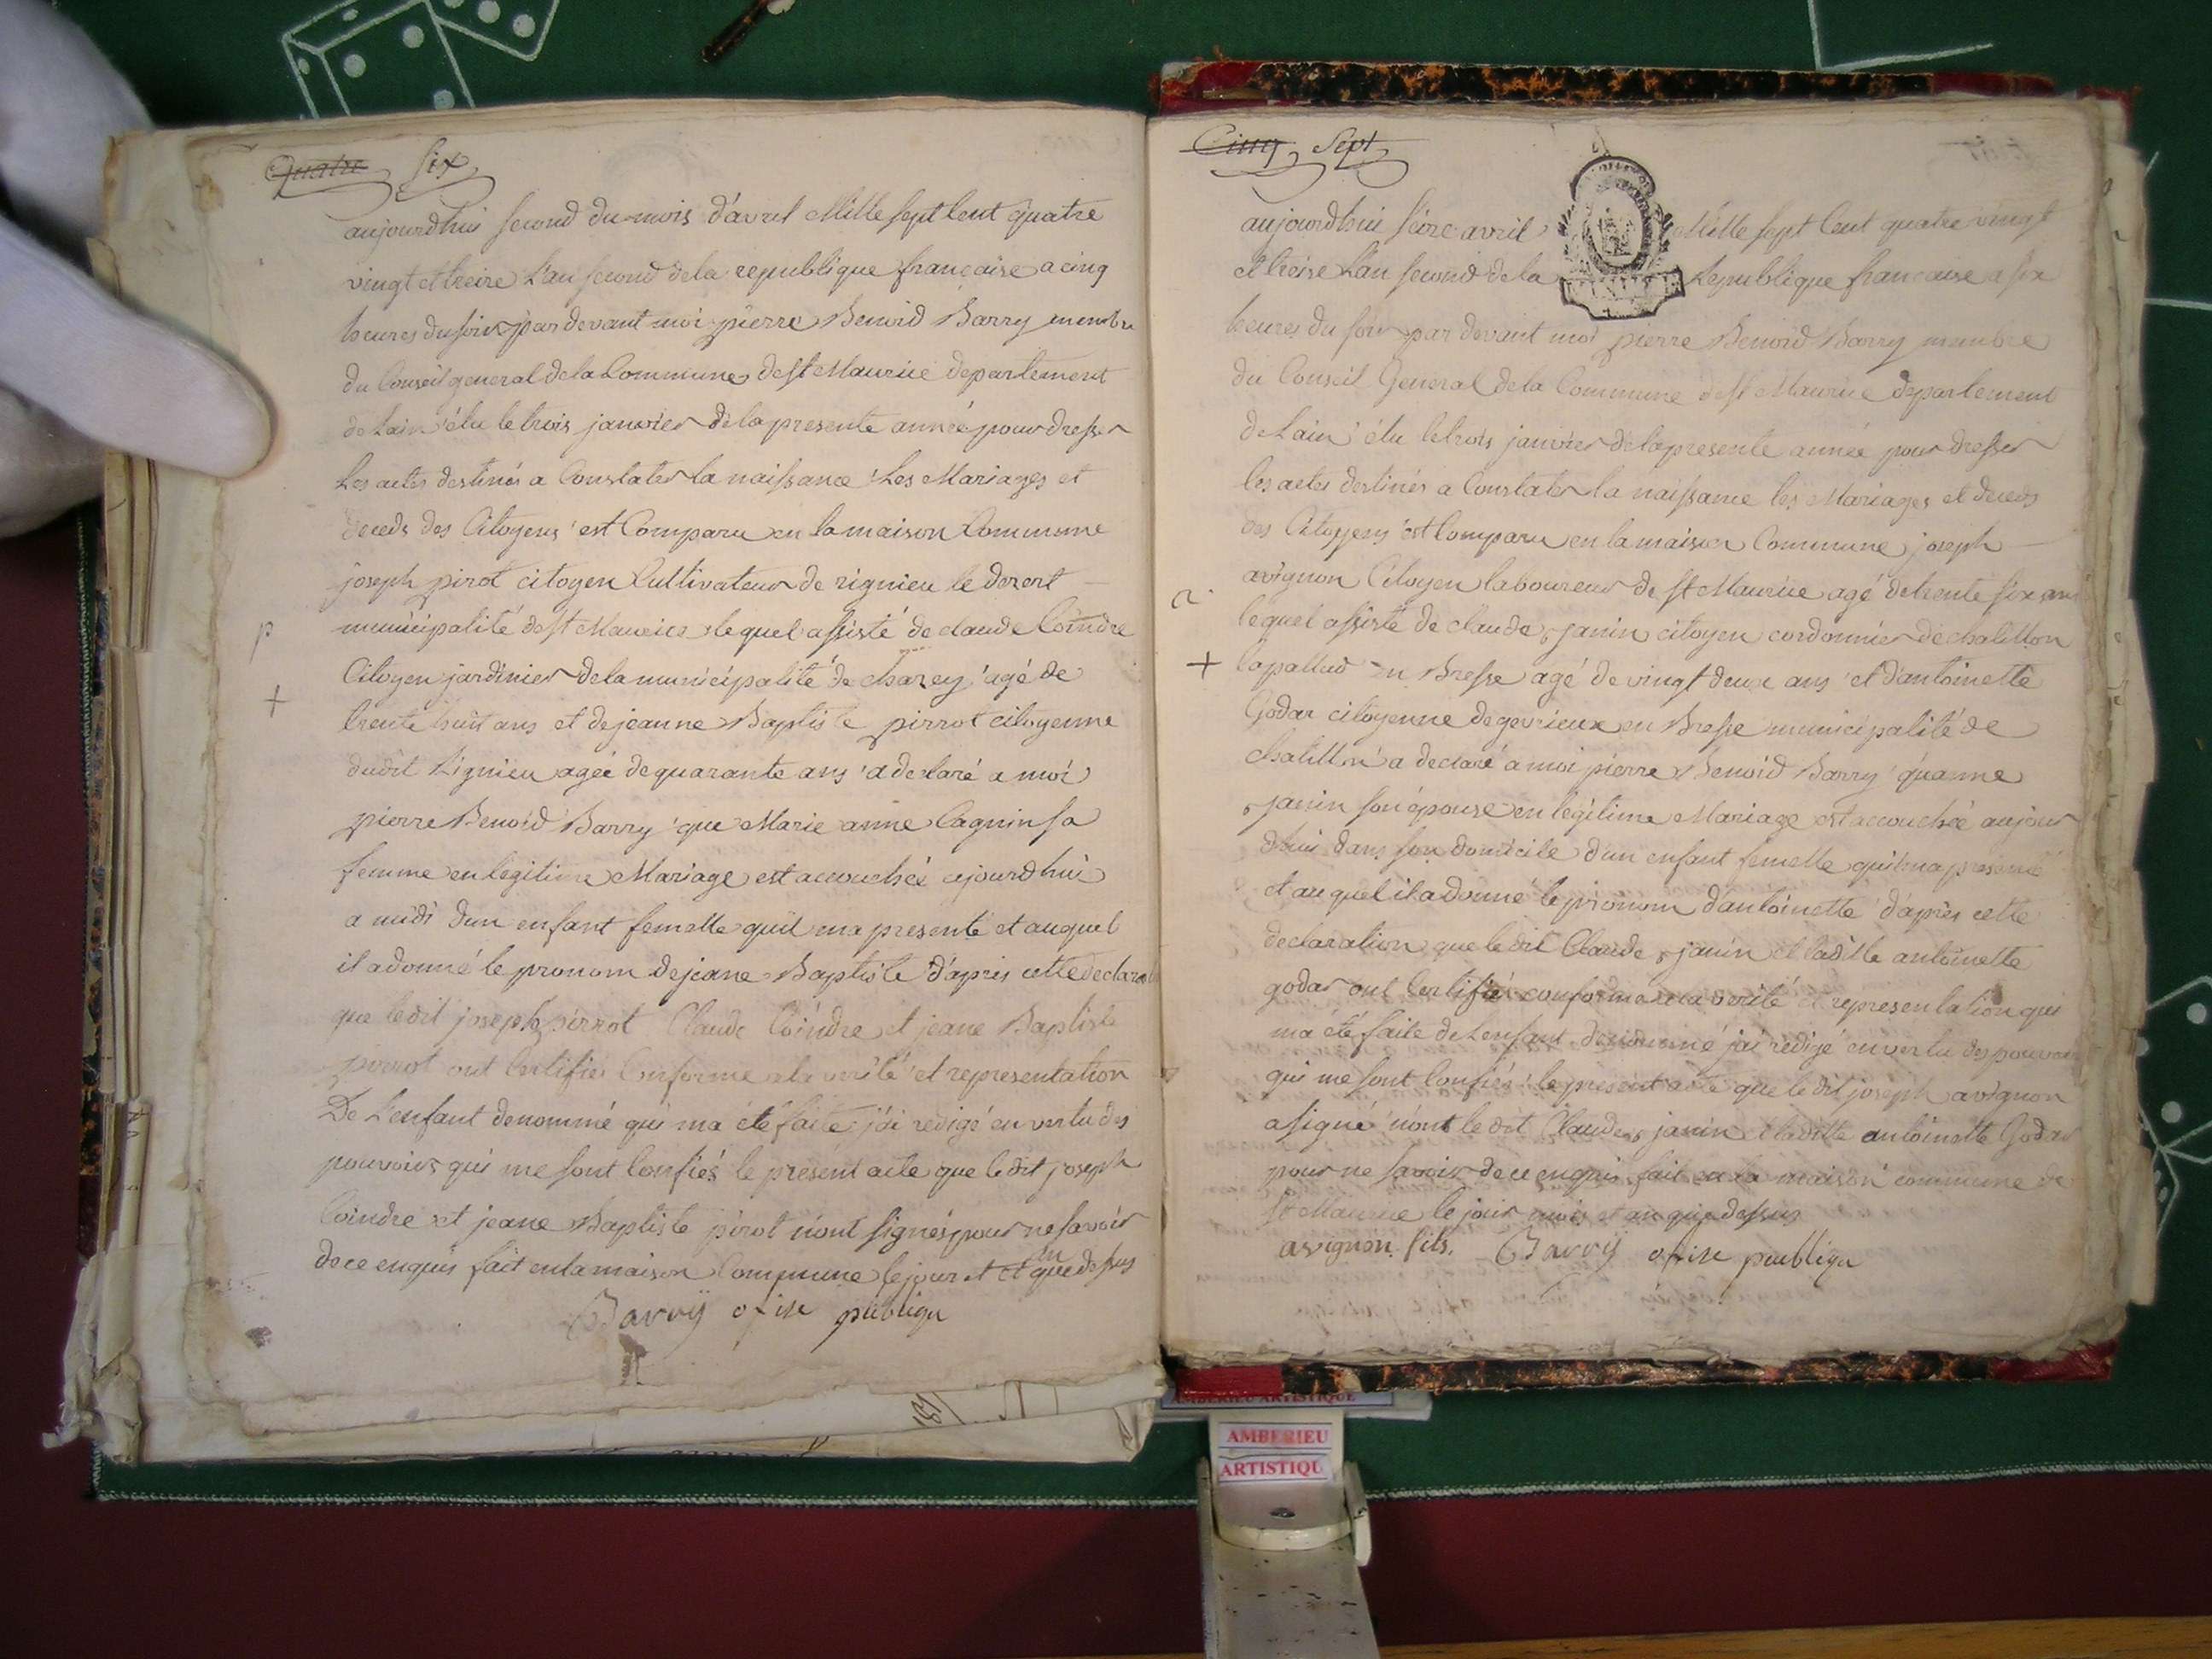 Quatre Six
aujourdhui second du mois d'avril Mille sept Cent quatre
vingt et treize L'an second de la republique françoise a cinq
heures du soir par devant moi pierre Benoid Barry membre
du Conseil general de la Commune de st Maurice departement
de Lain élu le trois janvier de la presente année pour dresser
Les actes destinés a Constater la naissance Les Mariages et
deceds des Citoyens est Comparu en la maison Commune
joseph pirot citoyen Cultivateur de rignieu le desert
municipalité de st Maurice lequel assisté de claude Coindre
p
Citoyen jardinier de la municipalité de charey agé de
+
trente huit ans et de jeanne Baptiste pirrot citoyenne
dudit Rignieu agée de quarante ans a declaré a moi
pierre Benoid Barry que Marie anne Cagnin sa
femme en legitime Mariage est accouchée ajourdhui
a midi dun enfant femelle quil ma presenté et auquel
il a donné le pronom de jeane Baptiste d'apres cette declara
que ledit joseph pirrot Claude Coindre et jeane Baptiste
pirrot ont Certifiés Conforme a la verité et representation
De L'enfant denommé qui ma été faite j'ai redigé en vertu des
pouvoirs qui me sont Confiés le présent acte que le dit joseph
Coindre et jeane Baptiste pirot n'ont signés pour ne savoir
de ce enquis fait en la maison Commune le jour et et an que dessus
Barry ofise publiqu
Cinq Sept
aujourdhui seize avril Mille sept Cent quatre vingt
et treise L'an second de la Republique francaise a six
heures du soir par devant moi pierre Benoid Barry membre
du Conseil General de la Commune de st Maurice departement
de Lain élu le trois janvier de la presente année pour dresser
les actes destinés a Constater la naissance les Mariages et deceds
des Citoyens est Comparu en la maison Commune joseph
avignon Citoyen laboureur de st Maurice agé de trente six ans
a
lequel assisté de claude janin citoyen cordonnier de chalillon
+ lapallud en Bresse agé de vingt deux ans et d'antoinette
Godar citoyenne de gevrieux en Bresse municipalité de
chalillon a declaré a moi pierre Benoid Barry qu'anne
janin son épouse en legitime Mariage est accouchée aujour
dhui dans son domicile d'un enfant femelle quil ma presenté
et auquel il a donné le pronom d'antoinette d'apres cette
declaration que le dit Claude janin et ladille antoinette
godar ont Certifié conforme a la verité et representation qui
ma été faite de L'enfant denommé j'ai redigé en vertu des pouvoir
qui me sont Confiés le present acte que le dit joseph avignon
a signé n'ont le dit Claude janin et ladille antoinette Godar
pour ne savoir de ce enquis fait en la maison commune de
st Maurice le jour mois et an que dessus
avignon fils. Barry ofise publiqu
AMBERIEU ARTISTIQUE
AMBERIEU
ARTISTIQU